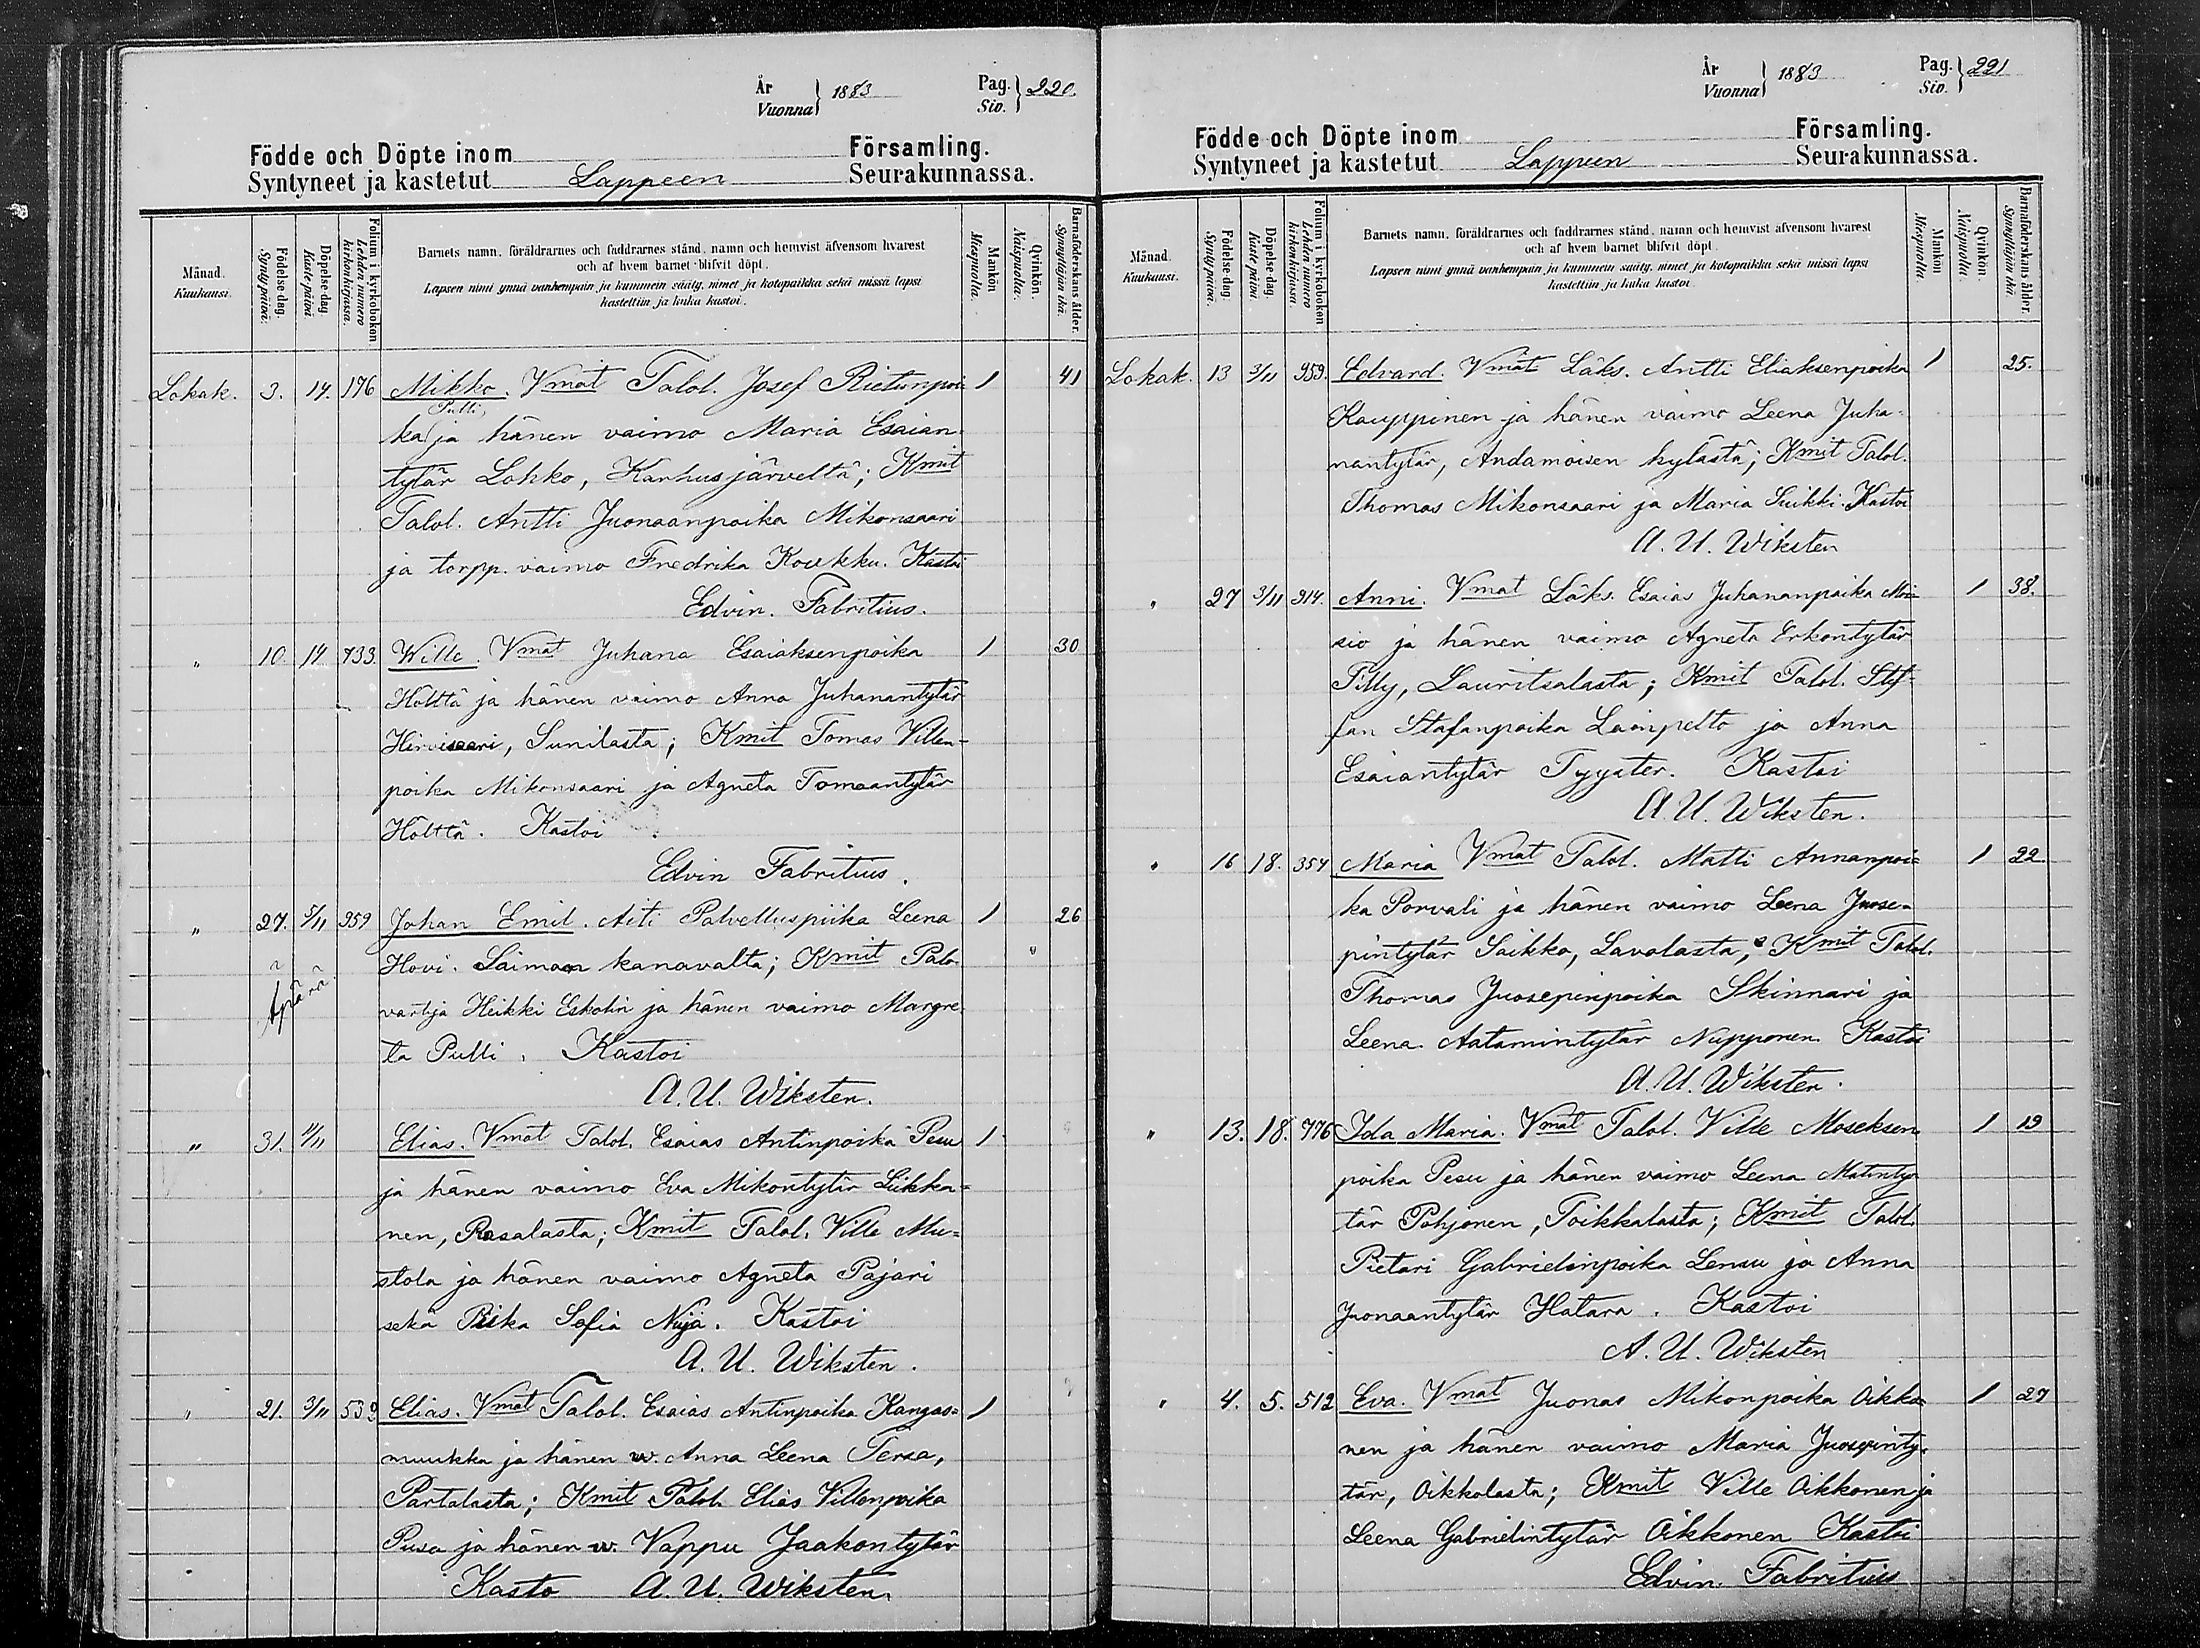 År
Vuonna } 1883
Pag.
Siv. } 220.
Födde och Döpte inom Församling.
Syntyneet ja kastetut Lappeen Seurakunnassa.
Månad.
Kuukausi.
Födelse dag.
Synty päivä.
Döpelse dag.
Kaste päivä
Folium i kyrkobokon
Lehden numero
kirkonkirjassa.
Barnets namn, föräldrarnes och faddrarnes stånd, namn och hemvist äfvensom hvarest
och af hvem barnet blifvit döpt.
Lapsen nimi ynnä vanhempain ja kummein sääty, nimet ja kotopaikka sekä missä lapsi
kastettiin ja kuka kastoi.
Mankön.
Miespuolia.
Qvinkön.
Naispuolia.
Barnaföderskans ålder.
Synnyttäjän ikä.
Lokak. 3. 14. 176 Mikko. Vmat Talol. Josef Rietunpoi- 1 41
Pulli
ka ja hänen vaimo Maria Esaian-
tytär Lohko, Karhusjärveltä; Kmit
Talol. Antti Juonaanpoika Mikonsaari
ja torpp. vaimo Fredrika Koukku. Kastoi
Edvin. Fabritius.
" 10. 14. 733 Wille. Vmat Juhana Esaiaksenpoika 1 30
Hölttä ja hänen vaimo Anna Juhanantytär
Hirvisaari, Sunilasta; Kmit Tomas Villen-
poika Mikonsaari ja Agneta Tomaantytär
Hölttä. Kastoi
Edvin Fabritius.
" 27. 5/11 959 Johan Emil. Äiti Palvelluspiika Leena 1 26
Hovi. Saimaan kanavalta; Kmit Palo-
Äpärä
vartija Heikki Eskolin ja hänen vaimo Margre-
ta Pulli. Kastoi
A. U. Wiksten.
" 31. 11/11 Elias. Vmat Talol. Esaias Antinpoika Pesu 1
ja hänen vaimo Eva Mikontytär Liikka-
nen, Rasalasta; Kmit Talol. Ville Mu-
stola ja hänen vaimo Agneta Pajari
sekä Piika Sofia Nuja. Kastoi
A. U. Wiksten.
" 21. 3/11 539 Elias. Vmat Talol. Esaias Antinpoika Kangas- 1
muukka ja hänen w. Anna Leena Tersa,
Partalasta; Kmit Talol. Elias Villenpoika
Pusa ja hänen w. Vappu Jaakontytär
Kasto A. U. Wiksten.
År
Vuonna } 1883
Pag.
Siv. } 221
Födde och Döpte inom Församling.
Syntyneet ja kastetut Lappeen Seurakunnassa.
Månad.
Kuukausi.
Födelse dag.
Synty päivä.
Döpelse dag.
Kaste päivä
Folium i kyrkobokon
Lehden numero
kirkonkirjassa.
Barnets namn, föräldrarnes och faddrarnes stånd, namn och hemvist äfvensom hvarest
och af hvem barnet blifvit döpt.
Lapsen nimi ynnä vanhempain ja kummein sääty, nimet ja kotopaikka sekä missä lapsi
kastettiin ja kuka kastoi.
Mankön
Miespuolia.
Qvinkön.
Naispuolia.
Barnaföderskans ålder.
Synnyttäjän ikä.
Lokak. 13 3/11 959. Edvard. Vmat Läks. Antti Eliaksenpoika 1 25.
Kauppinen ja hänen vaimo Leena Juha-
nantytär, Andamoisen kylästä; Kmit Talol.
Thomas Mikonsaari ja Maria Suikki. Kastoi
A. U. Wiksten
" 27 3/11 914. Anni. Vmat Läks. Esaias Juhananpoika Moi- 1 38.
sio ja hänen vaimo Agneta Erkontytär
Tilly, Lauritsalasta; Kmit Talol. Stef-
fan Stafanpoika Lainpelto ja Anna
Esaiantytär Tyyster. Kastoi
A. U. Wiksten.
" 16 18. 354 Maria Vmat Talol. Matti Annanpoi- 1 22
ka Porvali ja hänen vaimo Leena Juose-
pintytär Saikko, Lavolasta, Kmit Talol.
Thomas Juosepinpoika Skinnari ja
Leena Aatamintytär Nupponen. Kastoi
A. U. Wiksten.
" 13. 18. 776 Ida Maria. Vmat Talol. Ville Moseksen- 1 19
poika Pesu ja hänen vaimo Leena Matinty-
tär Pohjonen, Toikkalasta; Kmit Talol.
Pietari Gabrielinpoika Lensu ja Anna
Juonaantytär Hatara. Kastoi
A. U. Wiksten
" 4. 5. 512 Eva. Vmat Juonas Mikonpoika Oikko- 1 27
nen ja hänen vaimo Maria Juosepinty-
tär, Oikkolasta; Kmit Ville Oikkonen ja
Leena Gabrielintytär Oikkonen Kastoi
Edvin. Fabritius